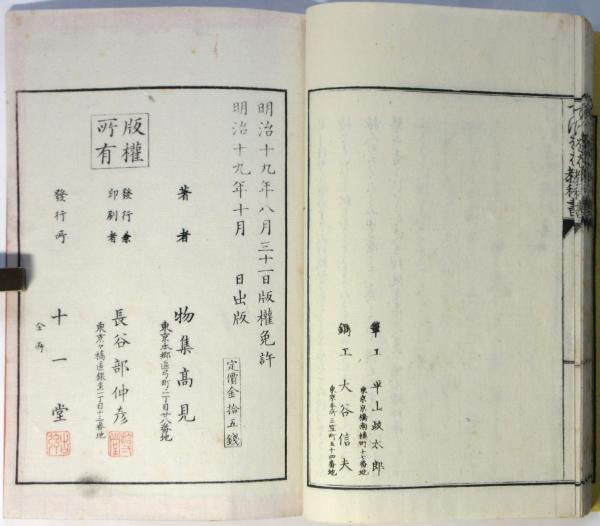 筆工 平山政太郎
東京京橋南橫町十七番地
鐫工 大谷信夫
東京本所三笠町五十四番地
明治十九年八月三十一日版權免許
明治十九年十月 日出版
定價金拾五錢
著者 物集高見
東京本鄉區弓町二丁目廿八番地
發行兼
印刷者
長谷部仲彦
東京々橋區銀座一丁目十三番地
發行所 十一堂
仝所
版權
所有